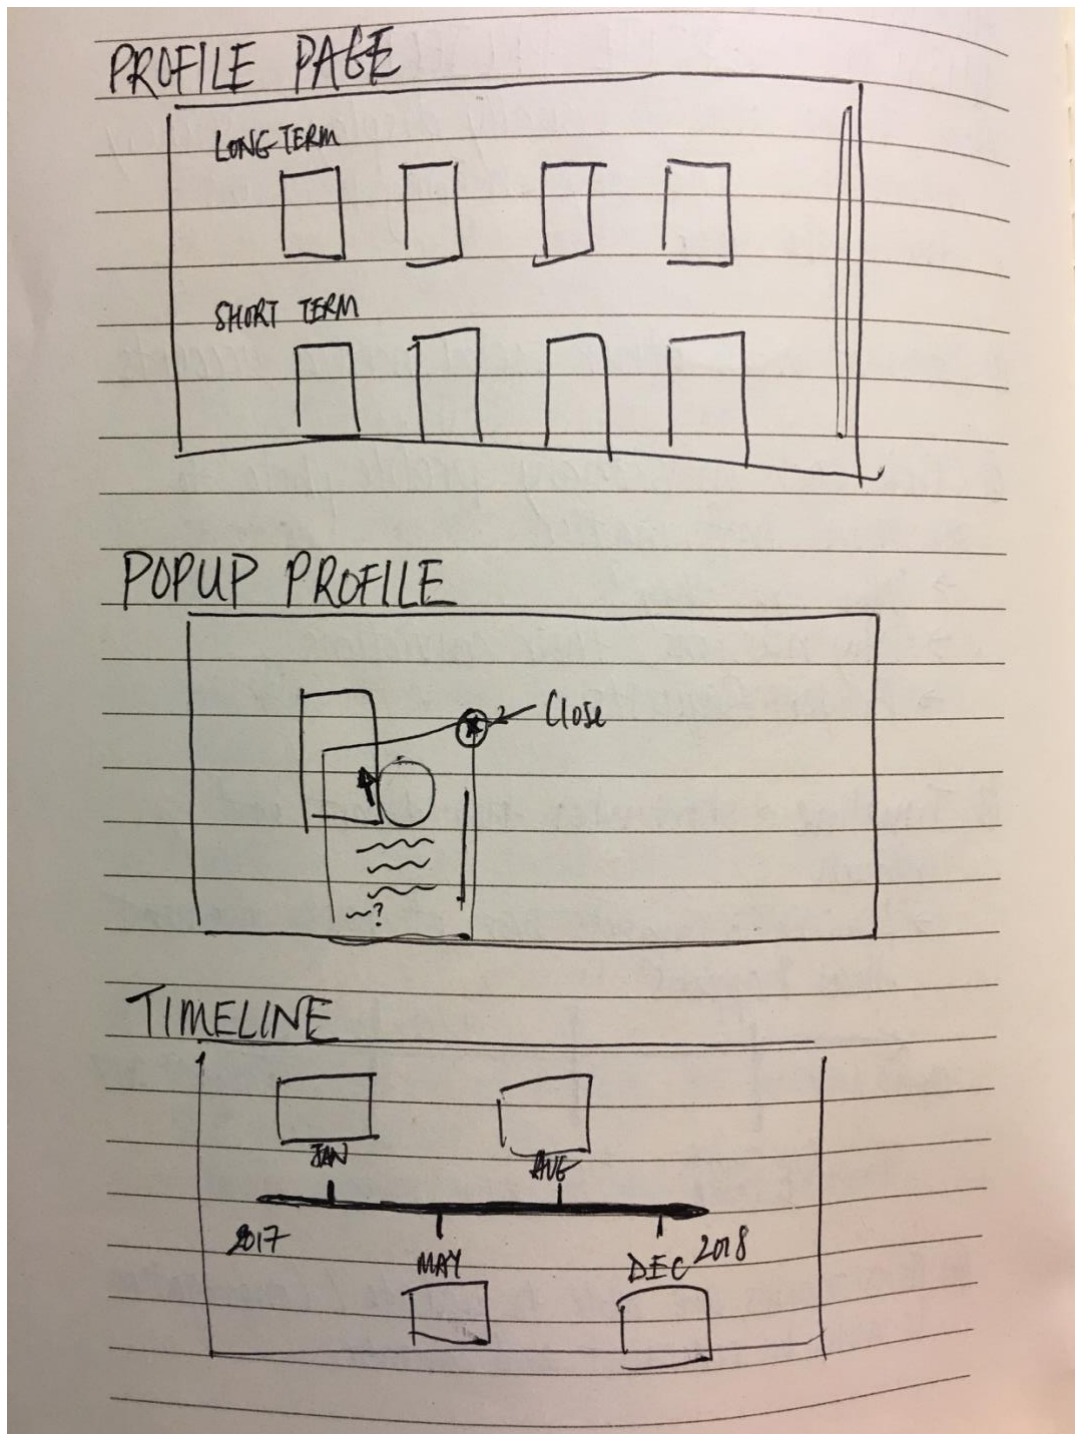 PROFILE PAGE
LONG-TERM
SHORT TERM
POPUP PROFILE
Close
?
TIMELINE
JAN
AUG
2017
MAY
DEC 2018